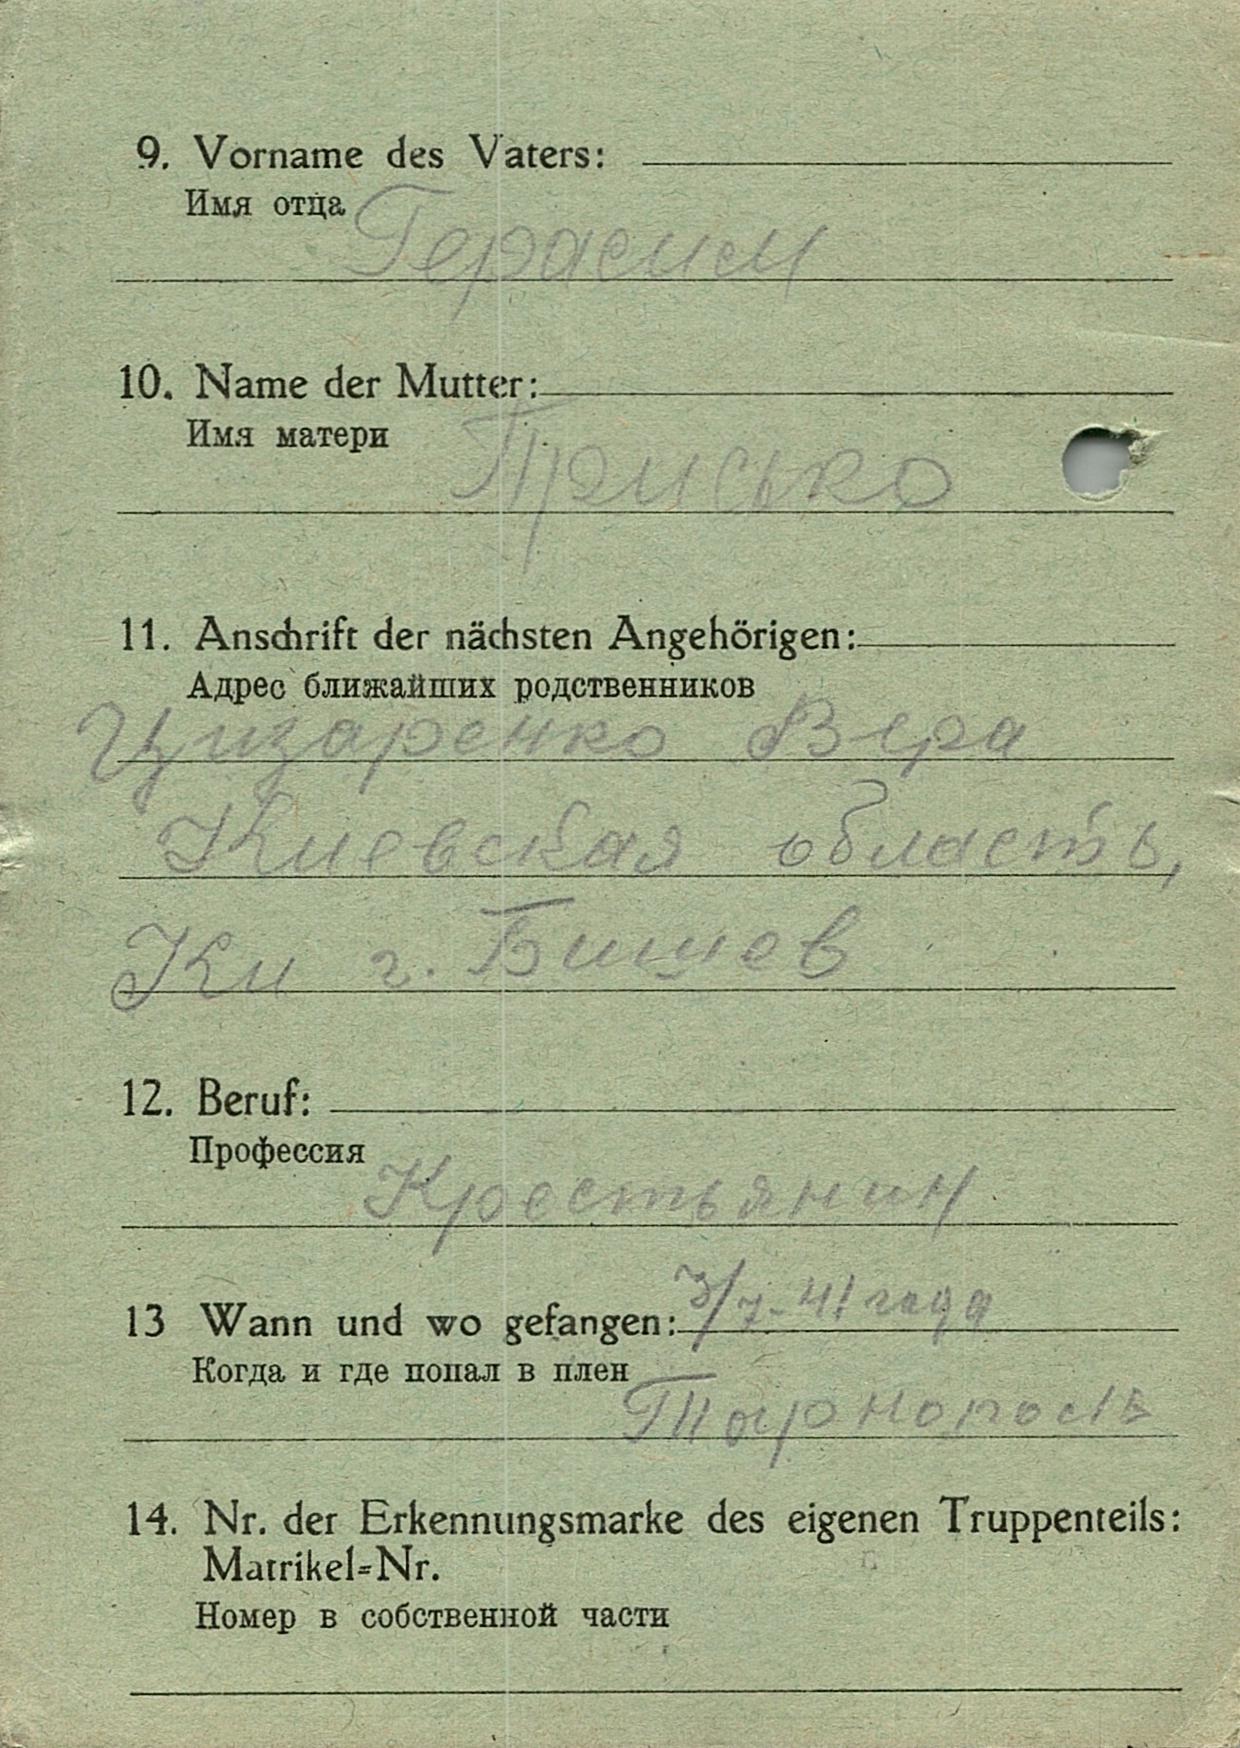 9. Vorname des Vaters:
Имя отца
Герасим
10. Name der Mutter:
Имя матери
Присько
11. Anschrift der nächsten Angehörigen:
Адрес ближайших родственников
Цизаренко Вера
Киевская область,
Ки г. Бишев
12. Beruf:
Профессия
Крестьянин
13 Wann und wo gefangen: 3/7-41 года
Когда и где попал в плен
14. Nr. der Erkennungsmarke des eigenen Truppenteils:
Matrikel=Nr.
Номер в собственной части